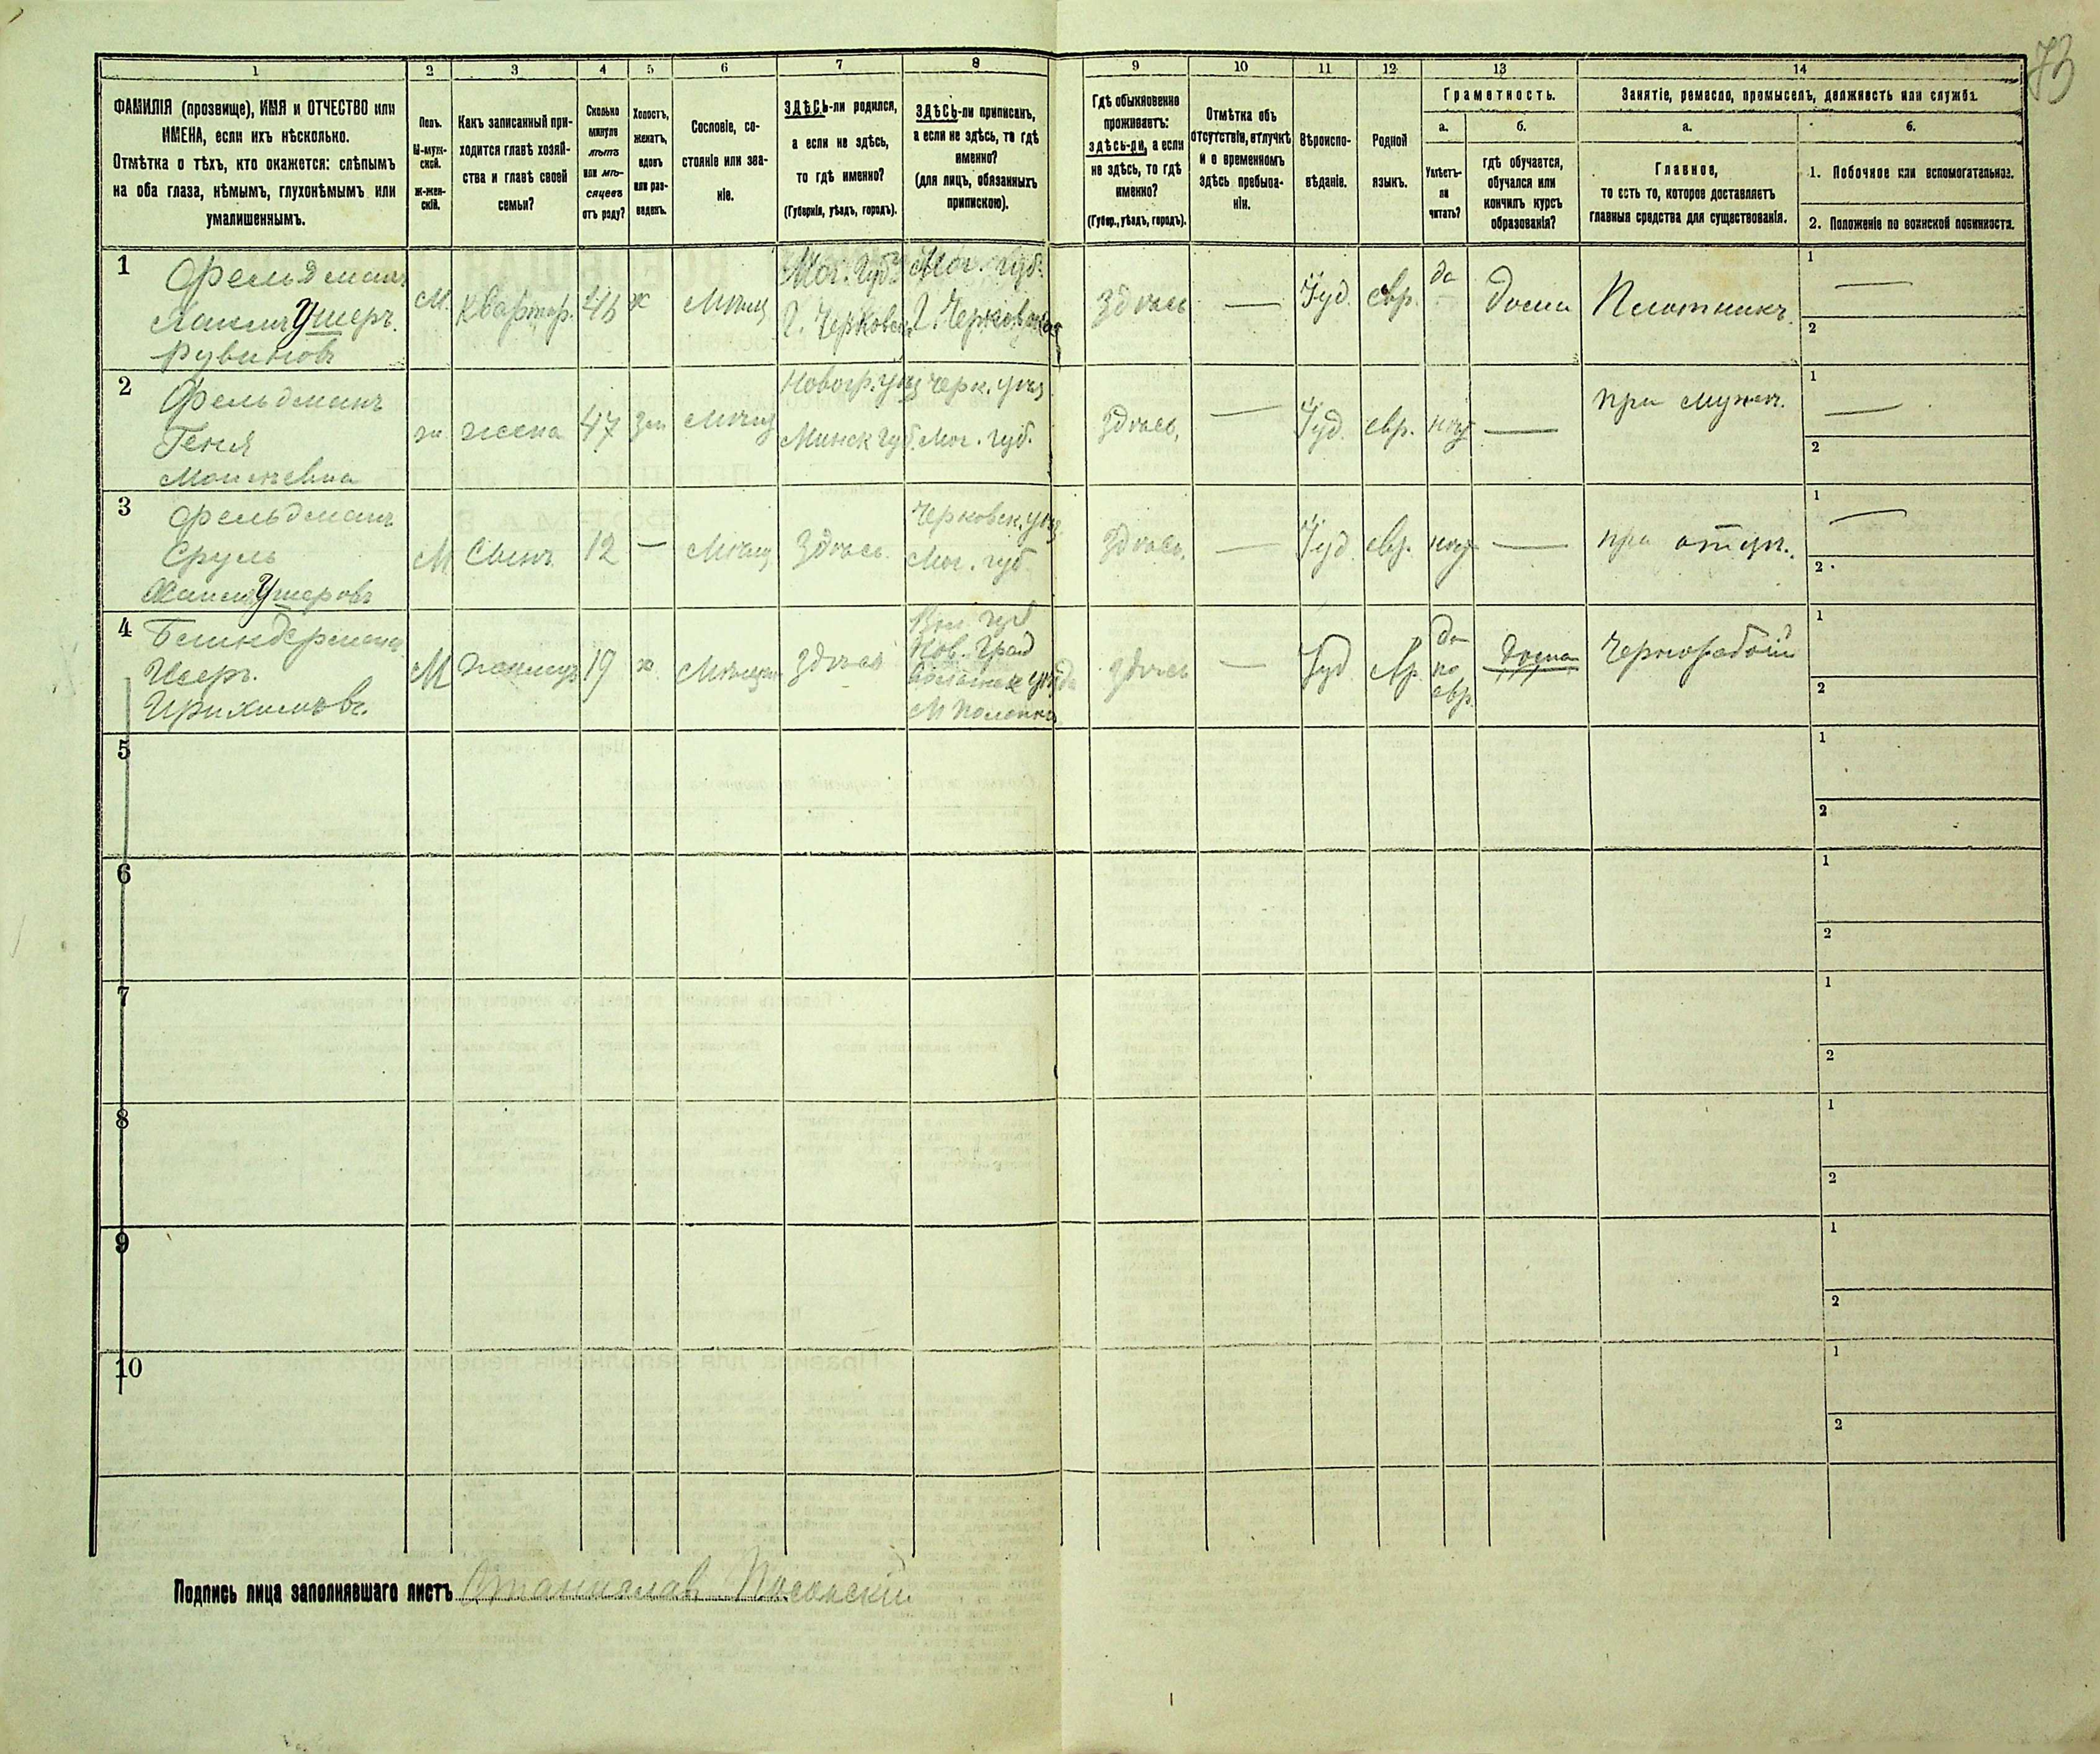 73
1 2 3 4 5 6 7 8 9 10 11 12 13 14
ФАМИЛІЯ (прозвище), ИМЯ и ОТЧЕСТВО или
ИМЕНА, если ихъ нѣсколько.
Отмѣтка о тѣхъ, кто окажется: слѣпымъ
на оба глаза, нѣмымъ, глухонѣмымъ или
умалишеннымъ.
Полъ.
М-муж-
ской.
Ж-жен-
скій.
Какъ записанный при-
ходится главѣ хозяй-
ства и главѣ своей
семьи?
Сколько
минуло
лѣтъ
или мѣ-
сяцевъ
отъ роду?
Холостъ,
женатъ,
вдовъ
или раз-
веденъ.
Сословіе, со-
стояніе или зва-
ніе.
ЗДѢСЬ-ли родился,
а если не здѣсь,
то гдѣ именно?
(Губернія, уѣздъ, городъ).
ЗДѢСЬ-ли приписанъ,
а если не здѣсь, то гдѣ
именно?
(для лицъ, обязанныхъ
припискою).
Гдѣ обыкновенно
проживаетъ:
здѣсь-ли, а если
не здѣсь, то гдѣ
именно?
(Губер., уѣздъ, городъ).
Отмѣтка объ
отсутствіи, отлучкѣ
и о временномъ
здѣсь пребыва-
ніи.
Вѣроиспо-
вѣданіе.
Родной
языкъ.
Грамотность.
а.
Умѣетъ-
ли
читать?
б.
гдѣ обучается,
обучался или
кончилъ курсъ
образованія?
Занятіе, ремесло, промыселъ, должность или служба.
а.
Главное,
то есть то, которое доставляетъ
главныя средства для существованія.
б.
1. Побочное или вспомогательное.
2. Положеніе по воинской повинности.
1
Фельдманъ
Усшеръ.
Рувиновъ
М.
Квартир.
46
ж
Мѣщ
Мог. Губ.
Г. Чериков
Мог. Губ.
Г. Чериков
здѣсь
—
Іуд.
евр.
да
дома
Плотникъ.
1 —
2
2
Фельдманъ
Геня
Мошкевна
ж.
жена
47
зам
Мѣщ
Новогр. уѣз
Минск губ.
Черк. уѣз
Мог. губ.
здѣсь,
—
Іуд.
евр.
нѣт
—
при мужѣ.
1 —
2
3
Фельдманъ
Сруль
Ушеровъ
М
Сынъ
12
—
Мѣщ
Здѣсь.
Черковск. уѣз
Мог. губ
здѣсь,
—
Іуд.
евр.
нѣт
—
при отцѣ.
1 —
2
4
Ицрихимовъ.
М
жилецъ
19
х
Мѣщан
здѣсь
Вол. губ
Нов. Град
Волынск уѣзда
М Полонна
здѣсь
—
Іуд
евр
да
по
евр.
дома
Чернорабочій
1
2
5
1
2
6
1
2
7
1
2
8
1
2
9
1
2
10
1
2
Подпись лица заполнявшаго листъ Станиславъ